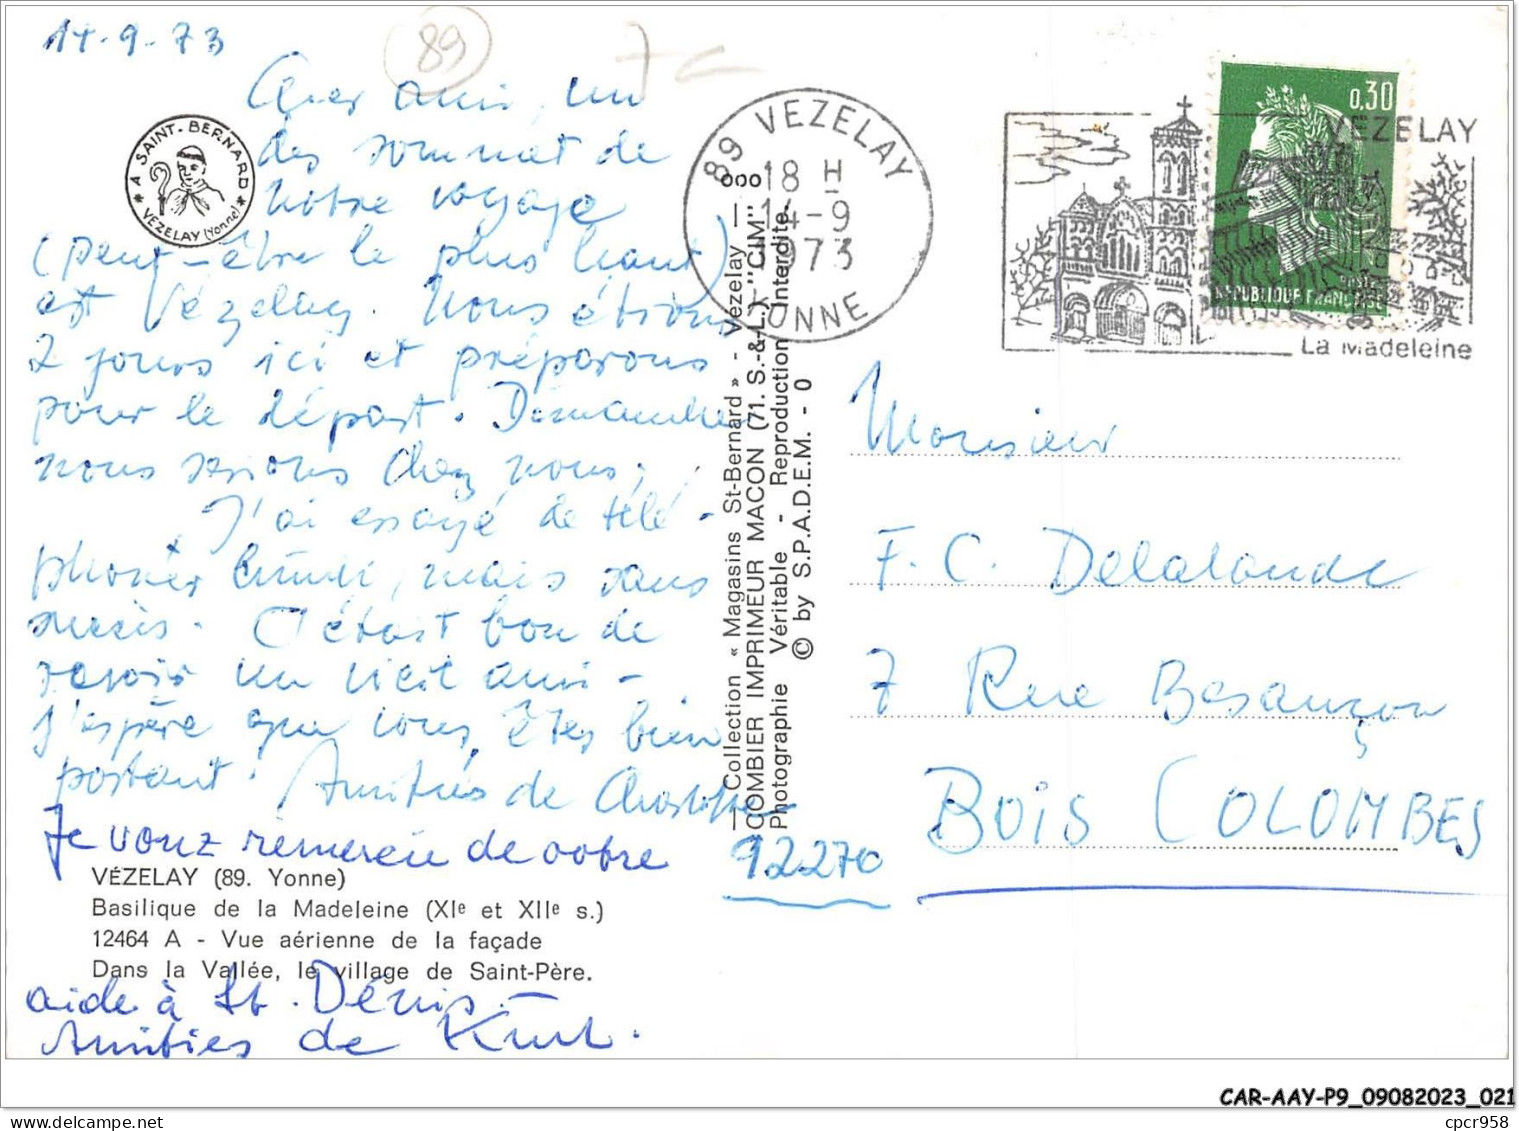 14-9-73
89
Cher ami, un
des sommet de
notre voyage
(peut-être le plus haut)
est Vézelay. Nous étions
2 jours ici et préparons
pour le départ. Demain
nous serions chez nous.
J'ai essayé de télé-
phoner lundi, mais sans
succès. C'était bon de
revoir un vieil ami -
j'espère que vous êtes bien
portant. Amitiés de
Je vouz remercie de votre
aide à St. Dénis. -
Amitiés de Kurt.
* A SAINT-BERNARD * VEZELAY (Yonne)
VÉZELAY (89. Yonne)
Basilique de la Madeleine (XIe et XIIe s.)
12464 A - Vue aérienne de la façade
Dans la Vallée, le village de Saint-Père.
Collection « Magasins St-Bernard » - Vezelay -
COMBIER IMPRIMEUR MACON (71. S.-&-L.) "CIM"
Photographie Véritable - Reproduction Interdite.
© by S.P.A.D.E.M. - 0
89 VEZELAY
18 H
14-9
1973
YONNE
VEZELAY
La Madeleine
0,30
REPUBLIQUE FRANÇAISE
Monsieur
F. C. Delalande
7 Rue Besançon
92270 BOIS COLOMBES
CAR-AAY-P9_09082023_021
cpcr958